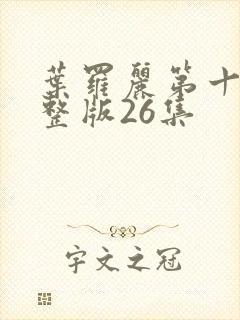 葉羅麗第十
整版26集
宇文之冠